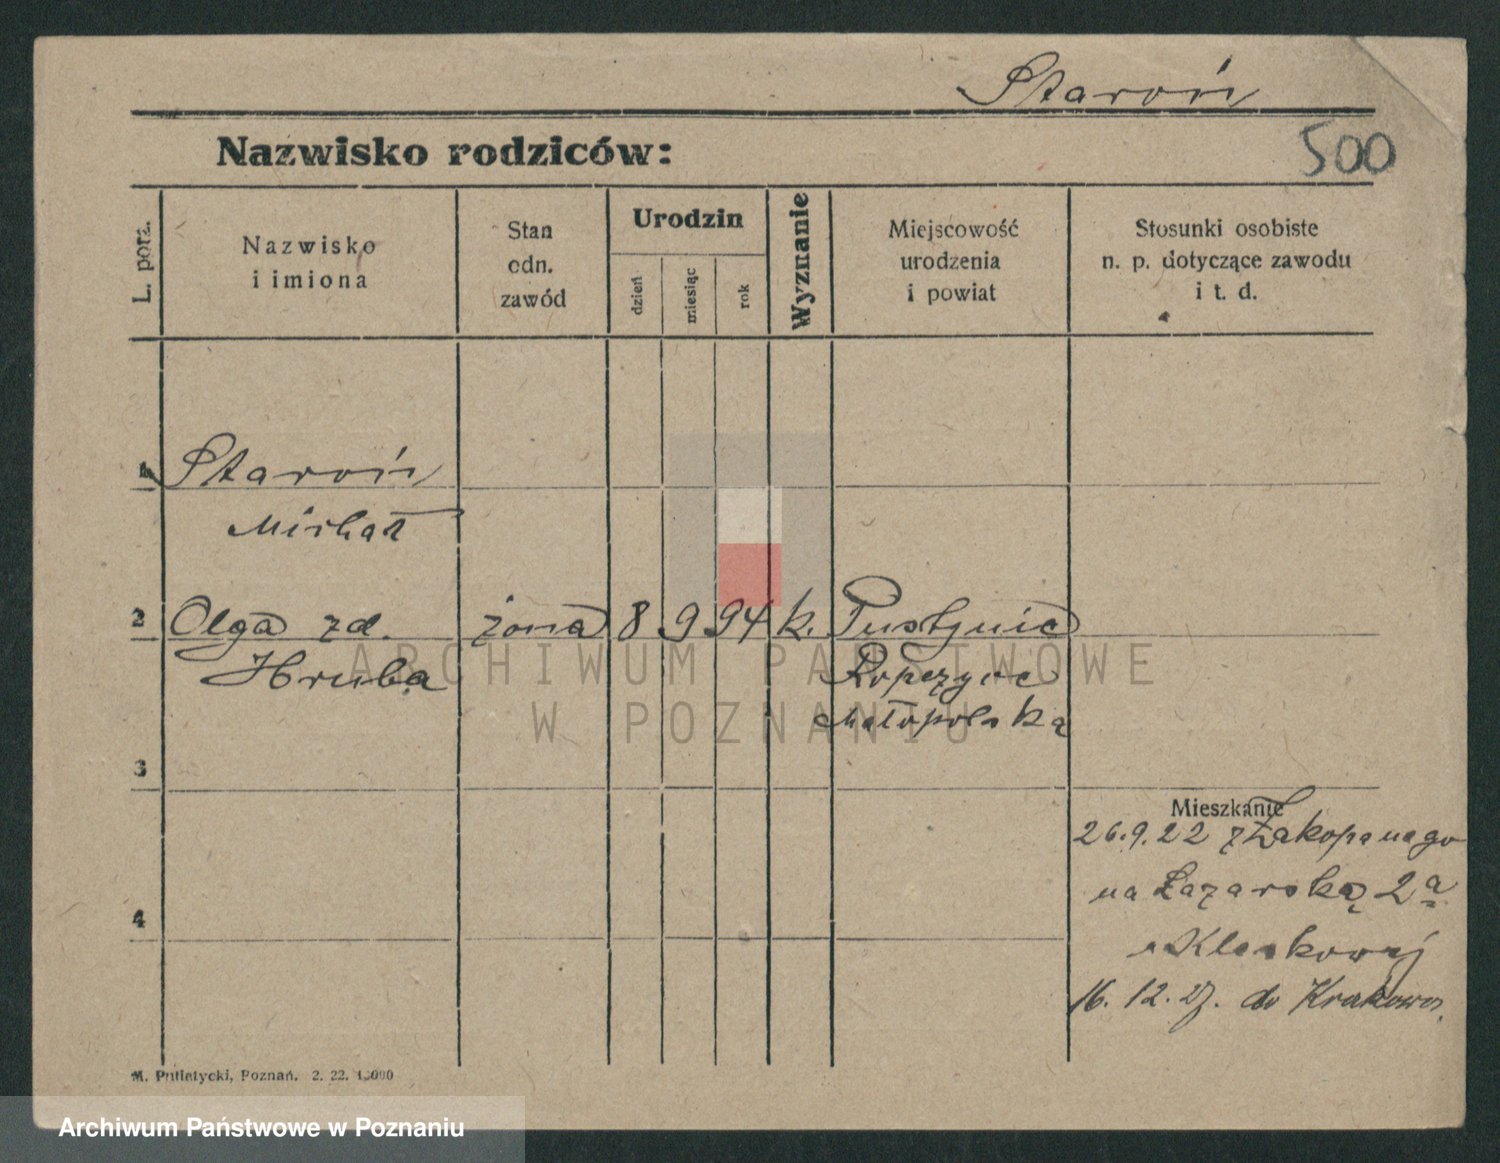 Staroń
Nazwisko rodziców:
500
L. porz.
Nazwisko
i imiona
Stan
odn.
zawód
Urodzin
dzień
miesiąc
rok
Wyznanie
Miejscowość
urodzenia
i powiat
Stosunki osobiste
n. p. dotyczące zawodu
i t. d.
1 Staroń
Michał
2 Olga zd. żona 8 9 94 k. Pustynia
Hruba
Ropczyce
Małopolska
3
Mieszkanie
26.9.22 z Zakopanego
na Łazarską 2a
4
16. 12. do Krakowa.
M. Putiatycki, Poznań. 2. 22.
ARCHIWUM PAŃSTWOWE
W POZNANIU
Archiwum Państwowe w Poznaniu